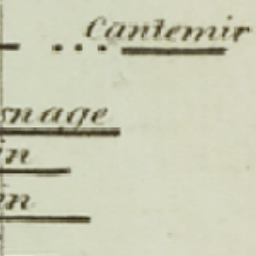 Cantemir
snage
in
en